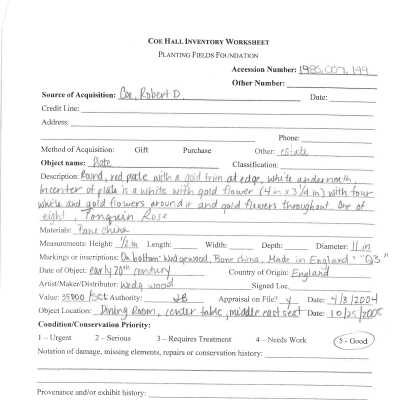 COE HALL INVENTORY WORKSHEET
PLANTING FIELDS FOUNDATION
Accession Number: 1985.007.149
Other Number:
Source of Acquisition: Coe, Robert D. Date:
Credit Line:
Address:
Phone:
Method of Acquisition: Gift Purchase Other: estate
Object name: Plate Classification:
Description: Round, red plate with a gold trim at edge, white underneath,
in center of plate is a white with gold flower (4 in x 3 1/4 in) with four
white and gold flowers around it and gold flowers throughout. One of
eight, Tonquin Rose
Materials: Bone china
Measurements: Height: 1/2 in Length: Width: Depth: Diameter: 11 in
Markings or inscriptions: On bottom "Wedgewood, Bone china, Made in England"
Date of Object: early 20th century Country of Origin: England
Artist/Maker/Distributor: Wedgwood Signed Loc.
Value: /set Authority: JB Appraisal on File? y Date: 4/8/2004
Object Location: Dining Room, center table, middle east seat Date: 10/25/2005
Condition/Conservation Priority:
1 – Urgent 2 – Serious 3 – Requires Treatment 4 – Needs Work 5 - Good
Notation of damage, missing elements, repairs or conservation history:
Provenance and/or exhibit history: